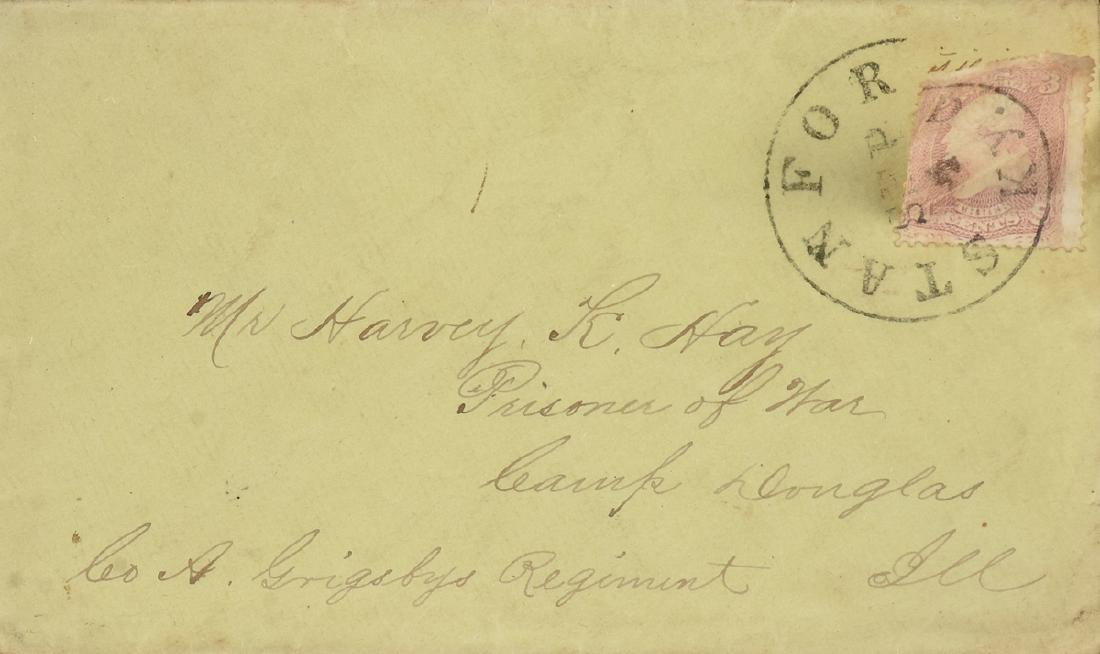 STANFORD KY.
3
Mr Harvey. K. Hay
Prisoner of War
Camp Douglas
Co A. Grigsbys Regiment Ill